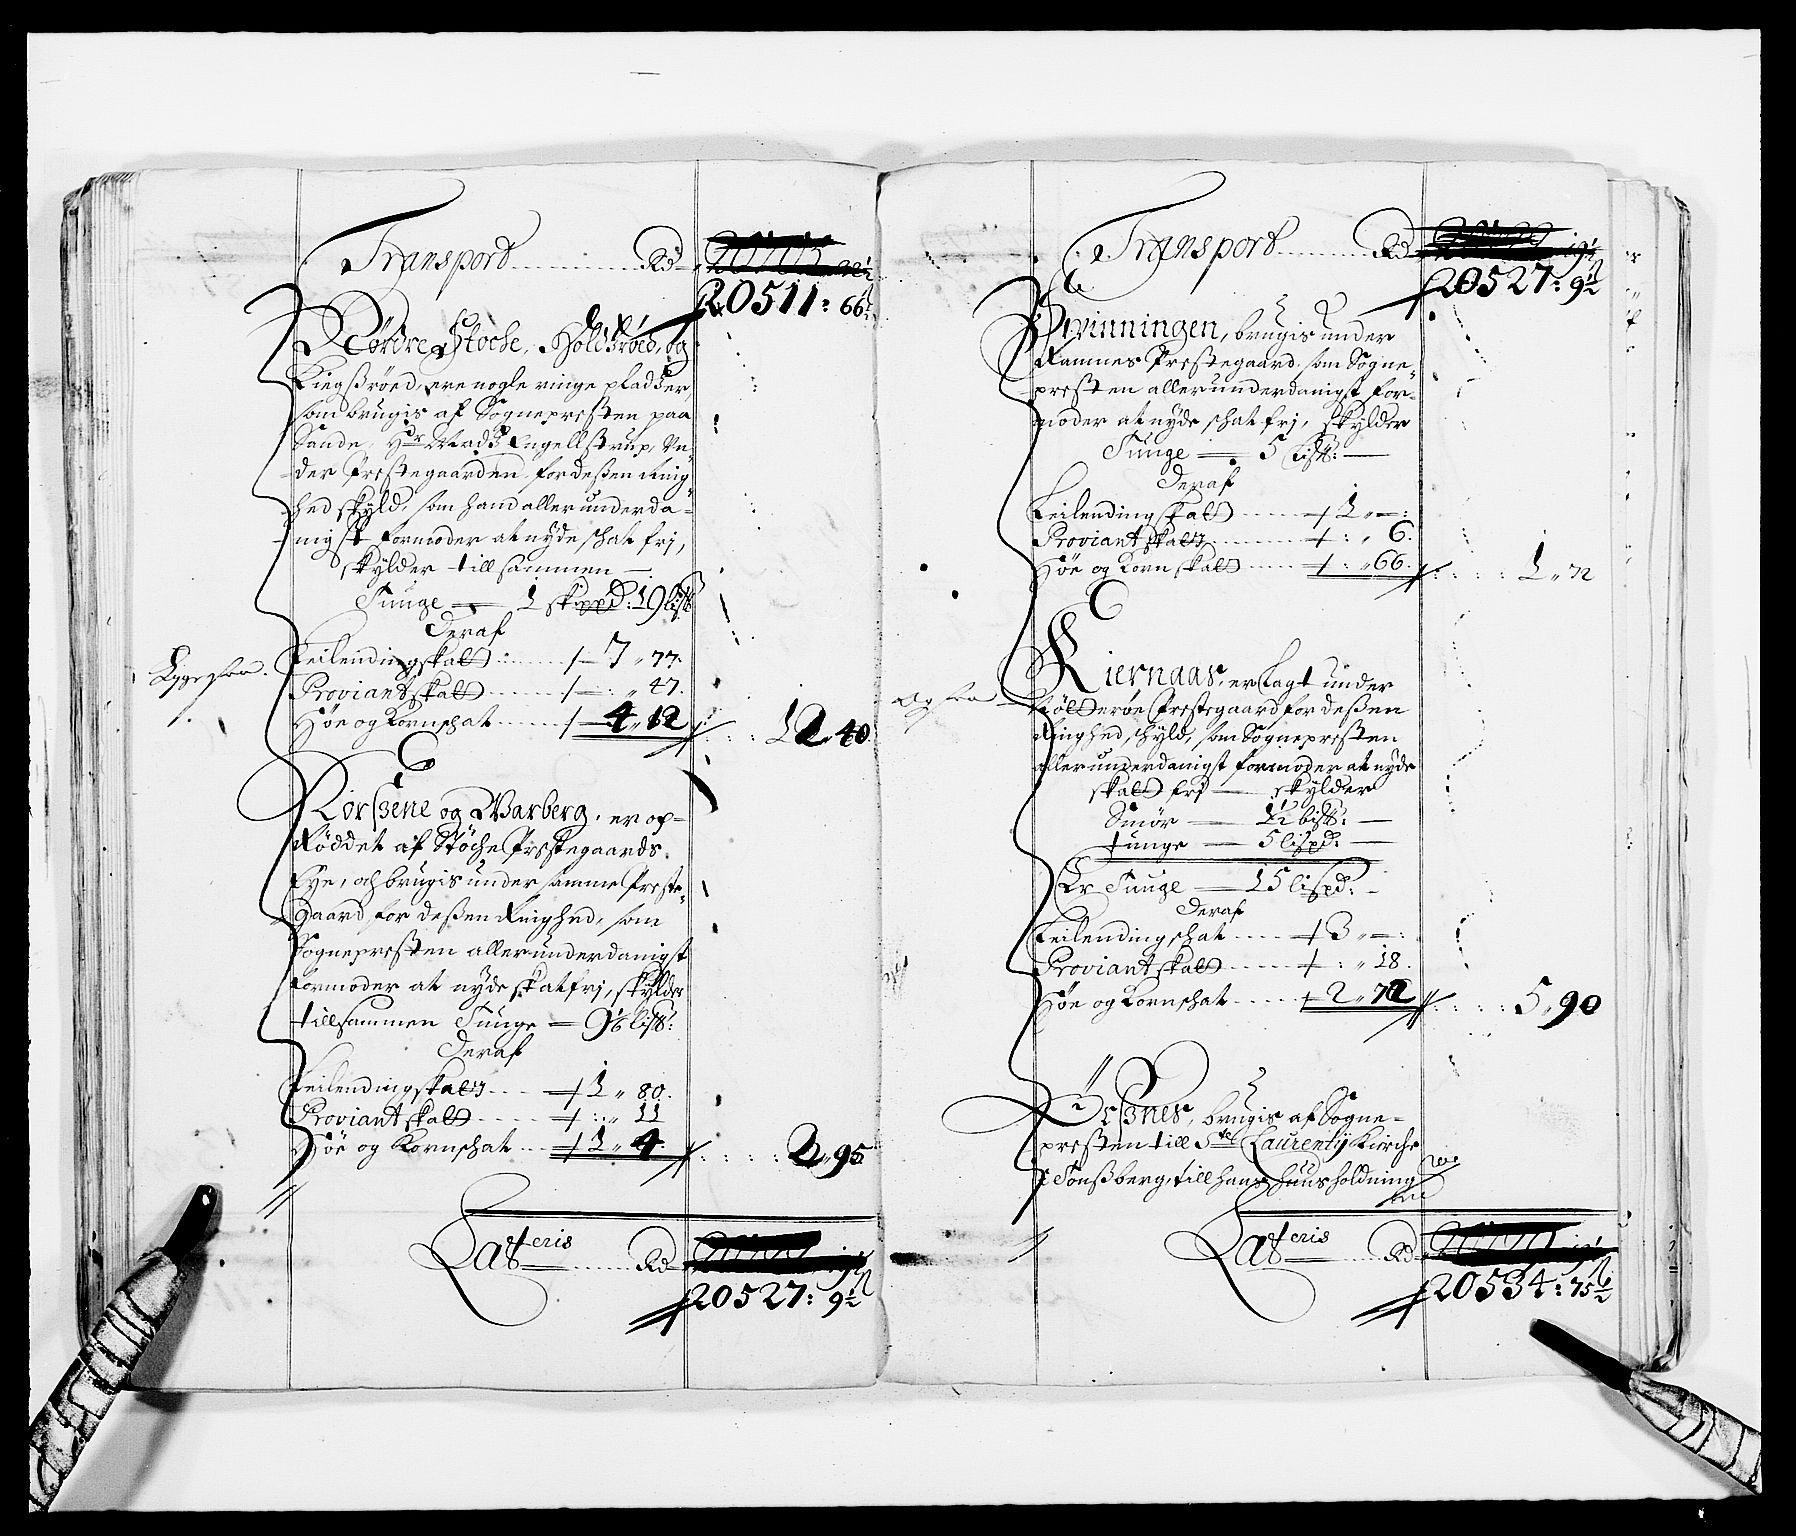 Transport ... Rd
20511: 66½
Nördre Stoche, Holdtröed, og
Kiegßröed, ere nogle ringe pladtzer,
som brugis af Sognepresten paa
Sande, Hr Madtz Engellstrup, Un-
der Prestegaarden, for deßen Ring-
hed skyld, som hand allerunderda-
nigst formoder at nyde schat frj,
skylder till sammen —
Tunge — 1 skippd: 19 lissb
Deraf
Leilendingskatt ... 7 „ 77.
Liggesaa.
Proviantskatt ... : „ 47.
Höe og Kornschat ... 4 „ 12
12 „ 40
Korßene og Warberg, er op-
Röddet af Stöche Prestegaards
Eye, och brugis under samme Preste-
gaard, for deßen Ringhed, som
Sognepresten allerunderdanigst
formoder at nyde skatfrj, skylder
tillsammen Tunge — 9½ lissb:
Deraf
Leilendingskatt ... 1 „ 80.
Proviantskatt ... : „ 11
Höe og Kornschat ... 1 „ 4.
2 „ 95
Lateris ... Rd
20527: 9½
Transport ... Rd
20527: 9½
Qvinningen, brugis under
Ramnes Prestegaard, som Sogne-
presten allerunderdanigst for-
moder at nyde schat frj, skylder
Tunge — 5 lissb: —
Deraf
Leilendingskatt ... 1 „ — :
Proviantskatt ... : „ 6.
Höe og Kornskatt ... : „ 66.
1 „ 72
Kiernaas, er lagt under
Nötterøe Prestegaard for deßen
Ringhed, skyld, som Sognepresten
allerunderdanigst formoder at nyde
skatt frj — skylder
Og saa
Smör — 1½ bissb: —
tunge — 5 lispd: —
Er Tunge — 15 lispd: —
Deraf
Leilendingschat ... 3 „ — :
Proviantskatt ... : „ 18.
Höe og Kornschat ... 2 „ 72
5 „ 90
Örßnes, brugis af Sogne-
presten till Ste Laurentij Kirche
i Tönßberg, till hans huusholdning
Lateris ... Rd
20534: 75½